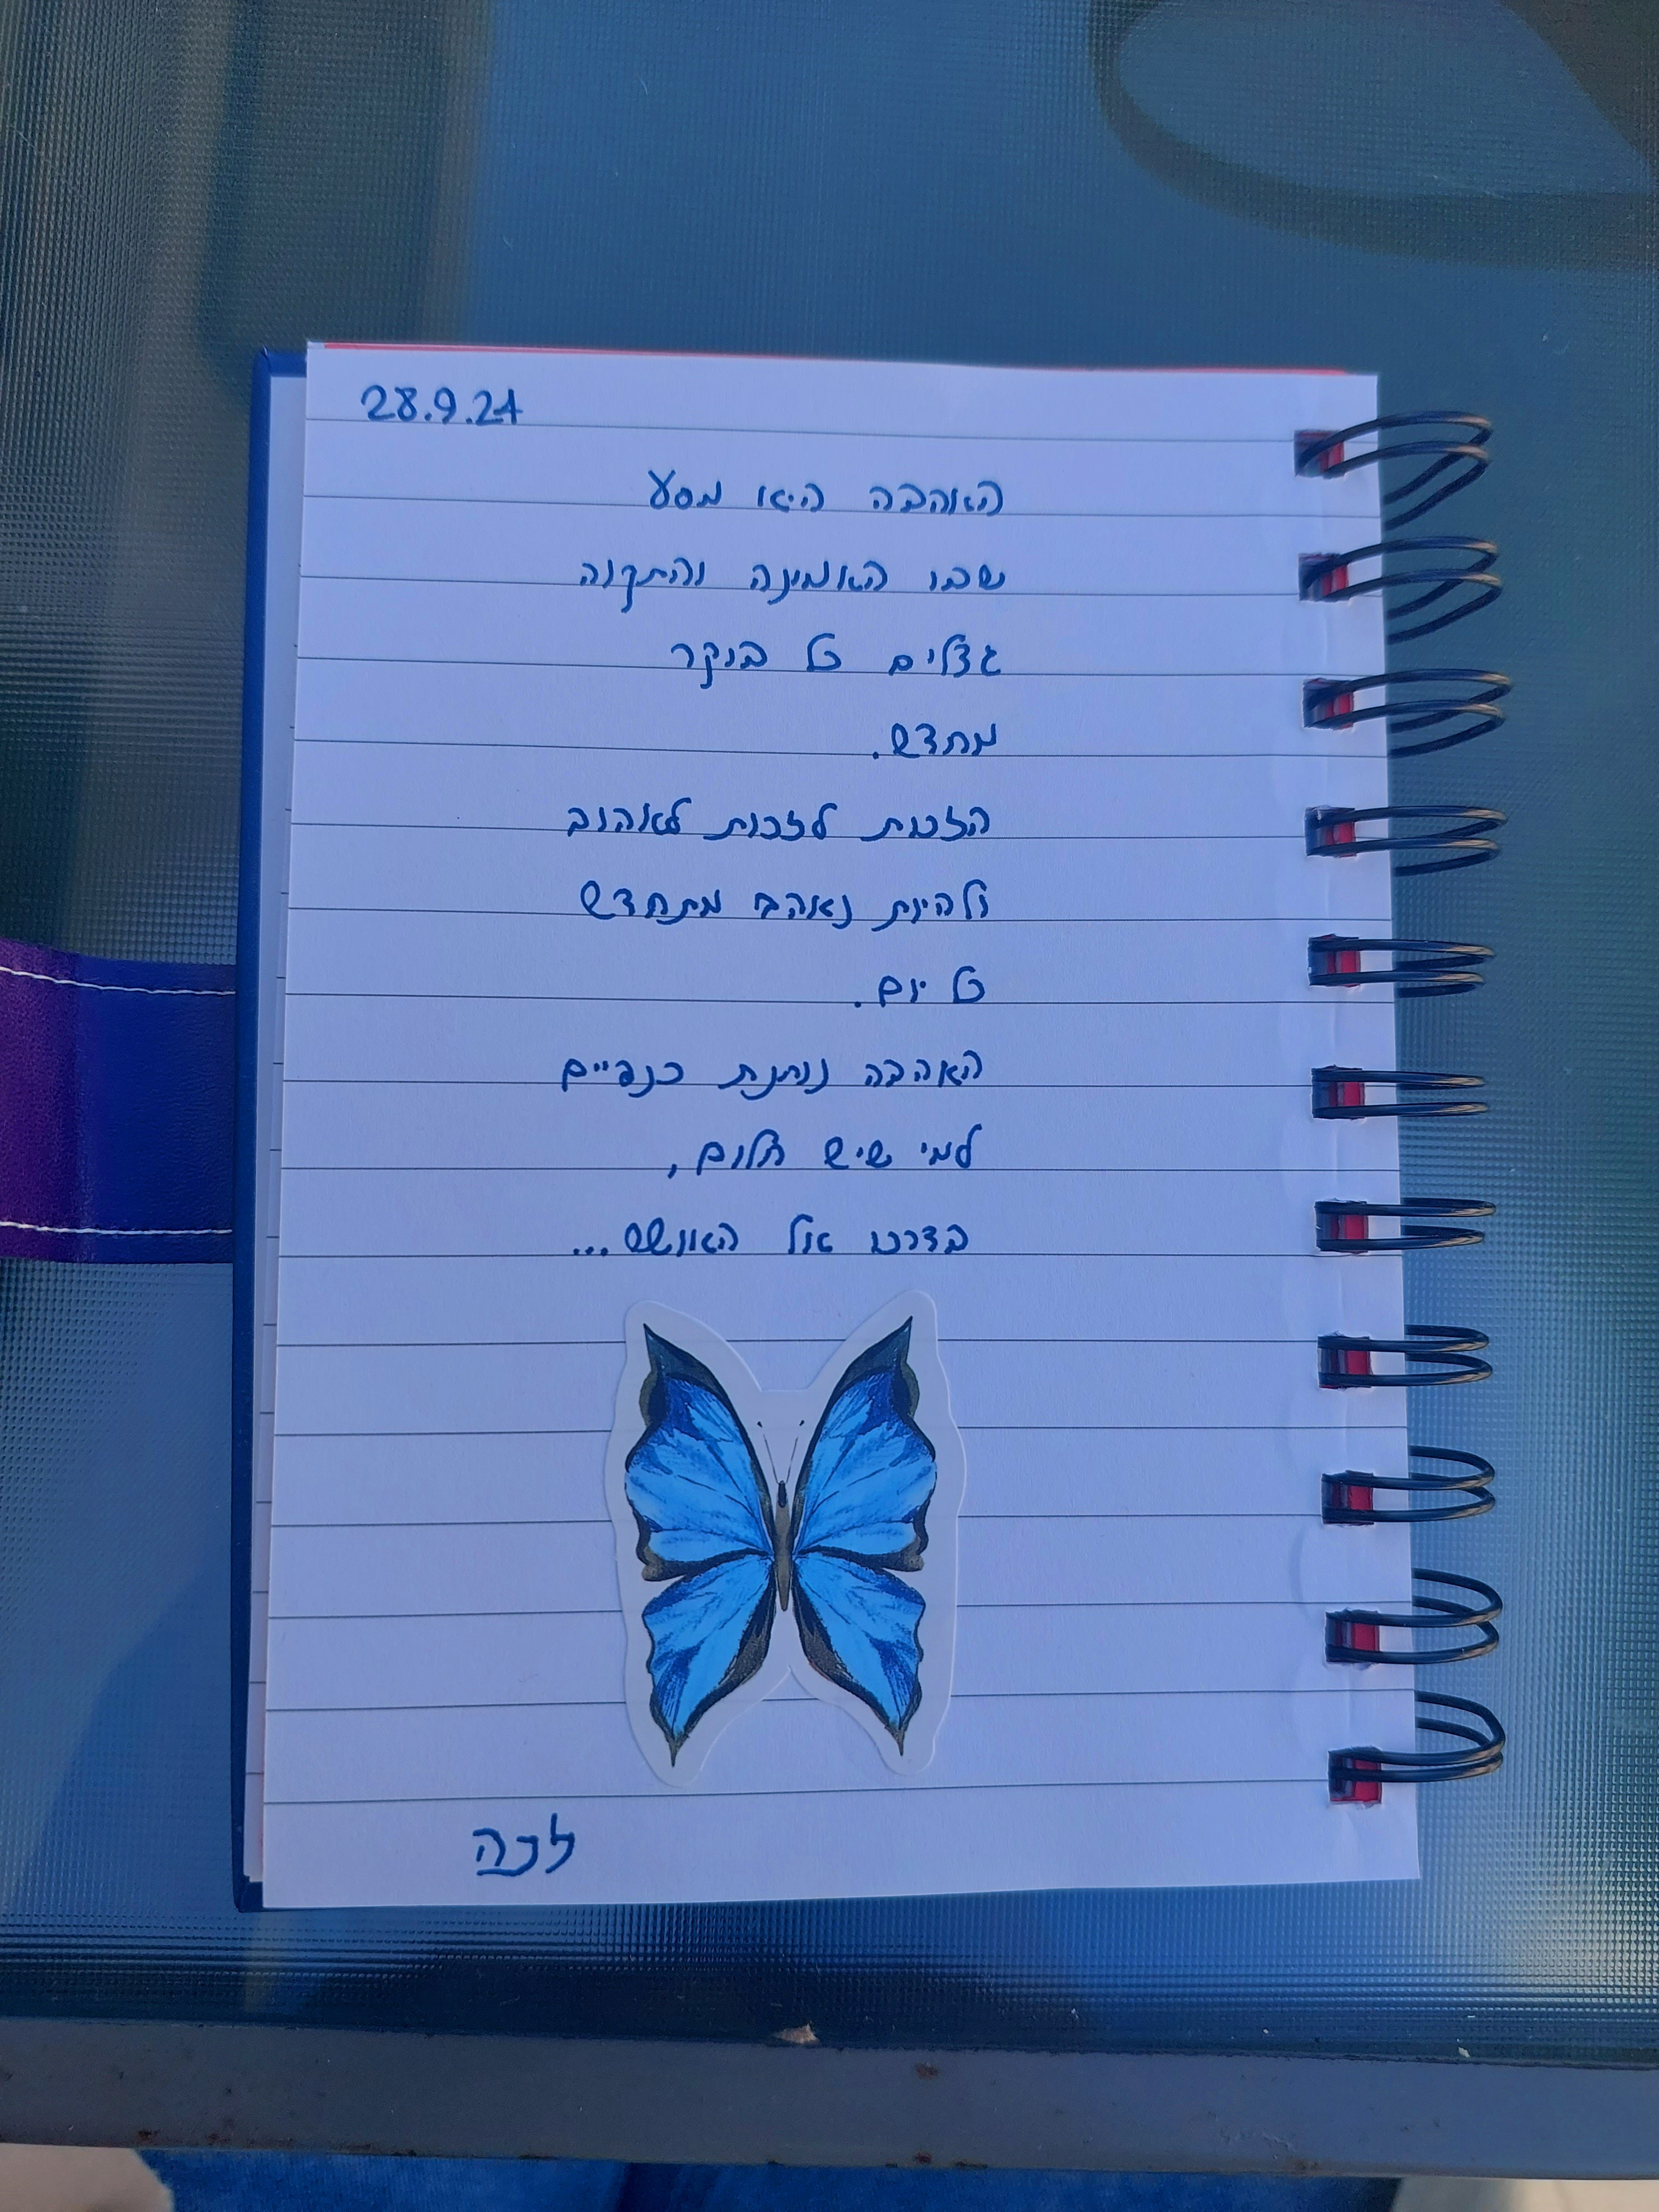 28.9.24
האהבה היא מסע
שבו האמונה והתקווה
גדלים כל בוקר
מחדש.
הזכות לזכות לאהוב
ולהיות נאהב מתחדש
כל יום.
האהבה נותנת כנפיים
למי שיש חלום,
בדרכו אל האושש...